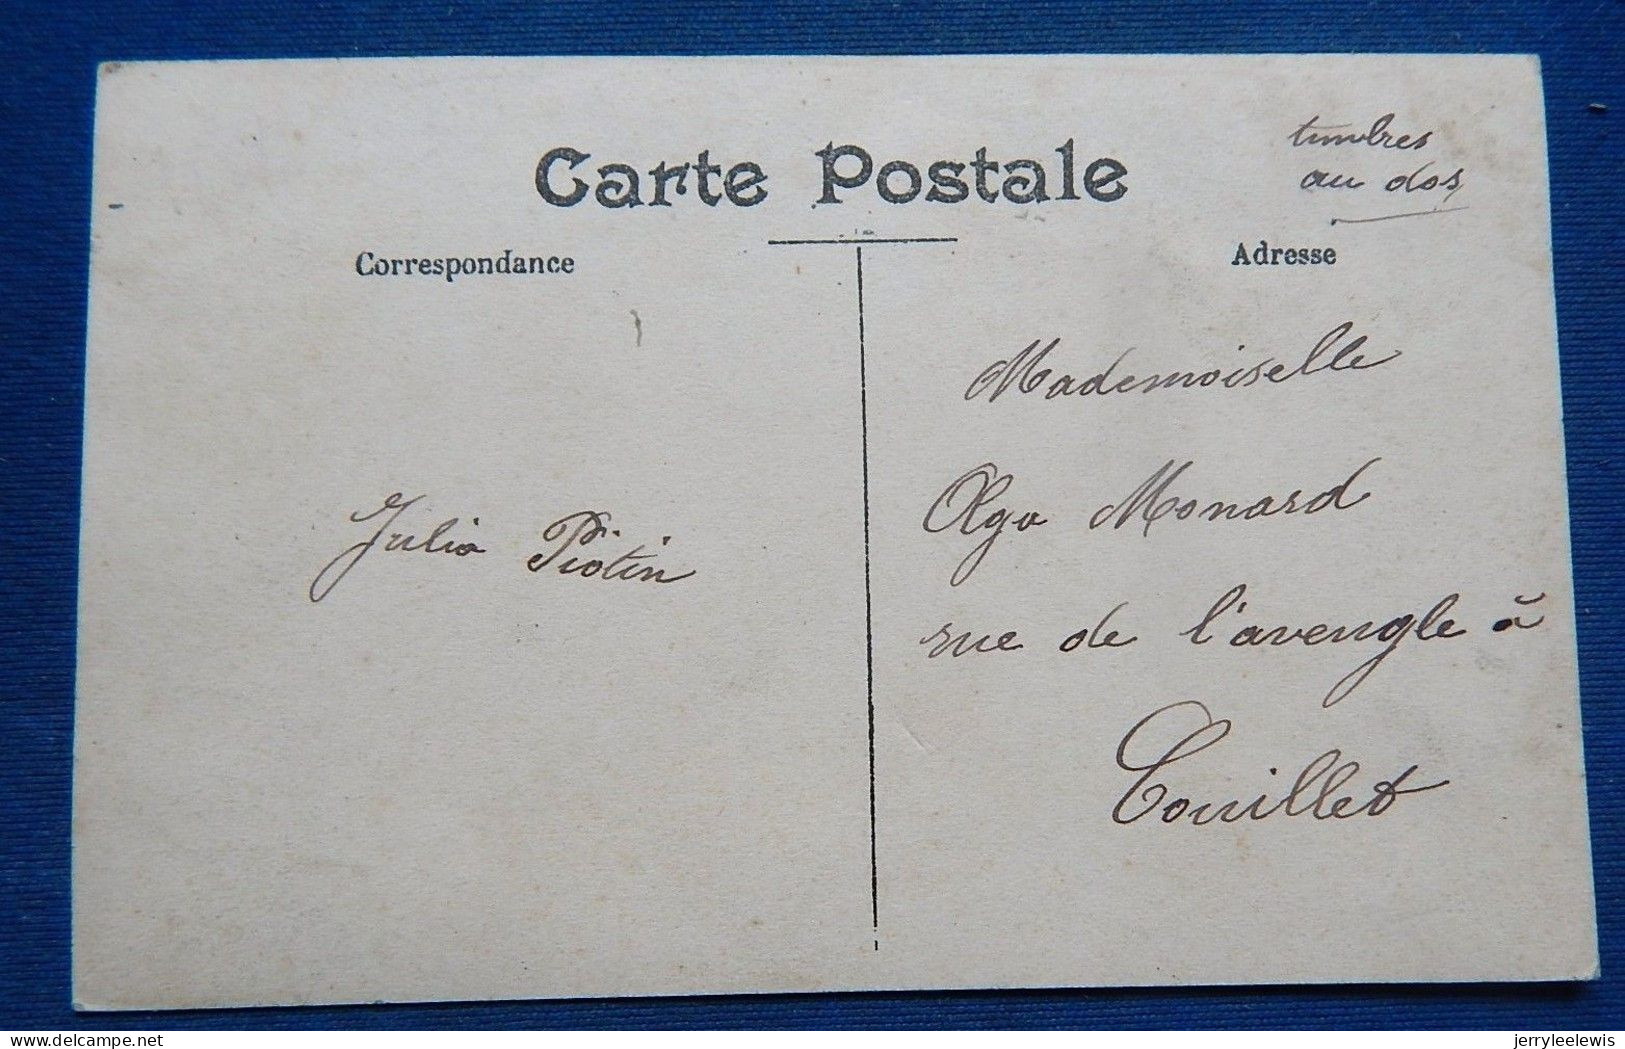 Carte Postale
timbres
au dos
Correspondance
Adresse
Mademoiselle
Olga Monard
rue de l'aveugle à
Couillet
Julia Piotin
delcampe.net
jerryleelewis